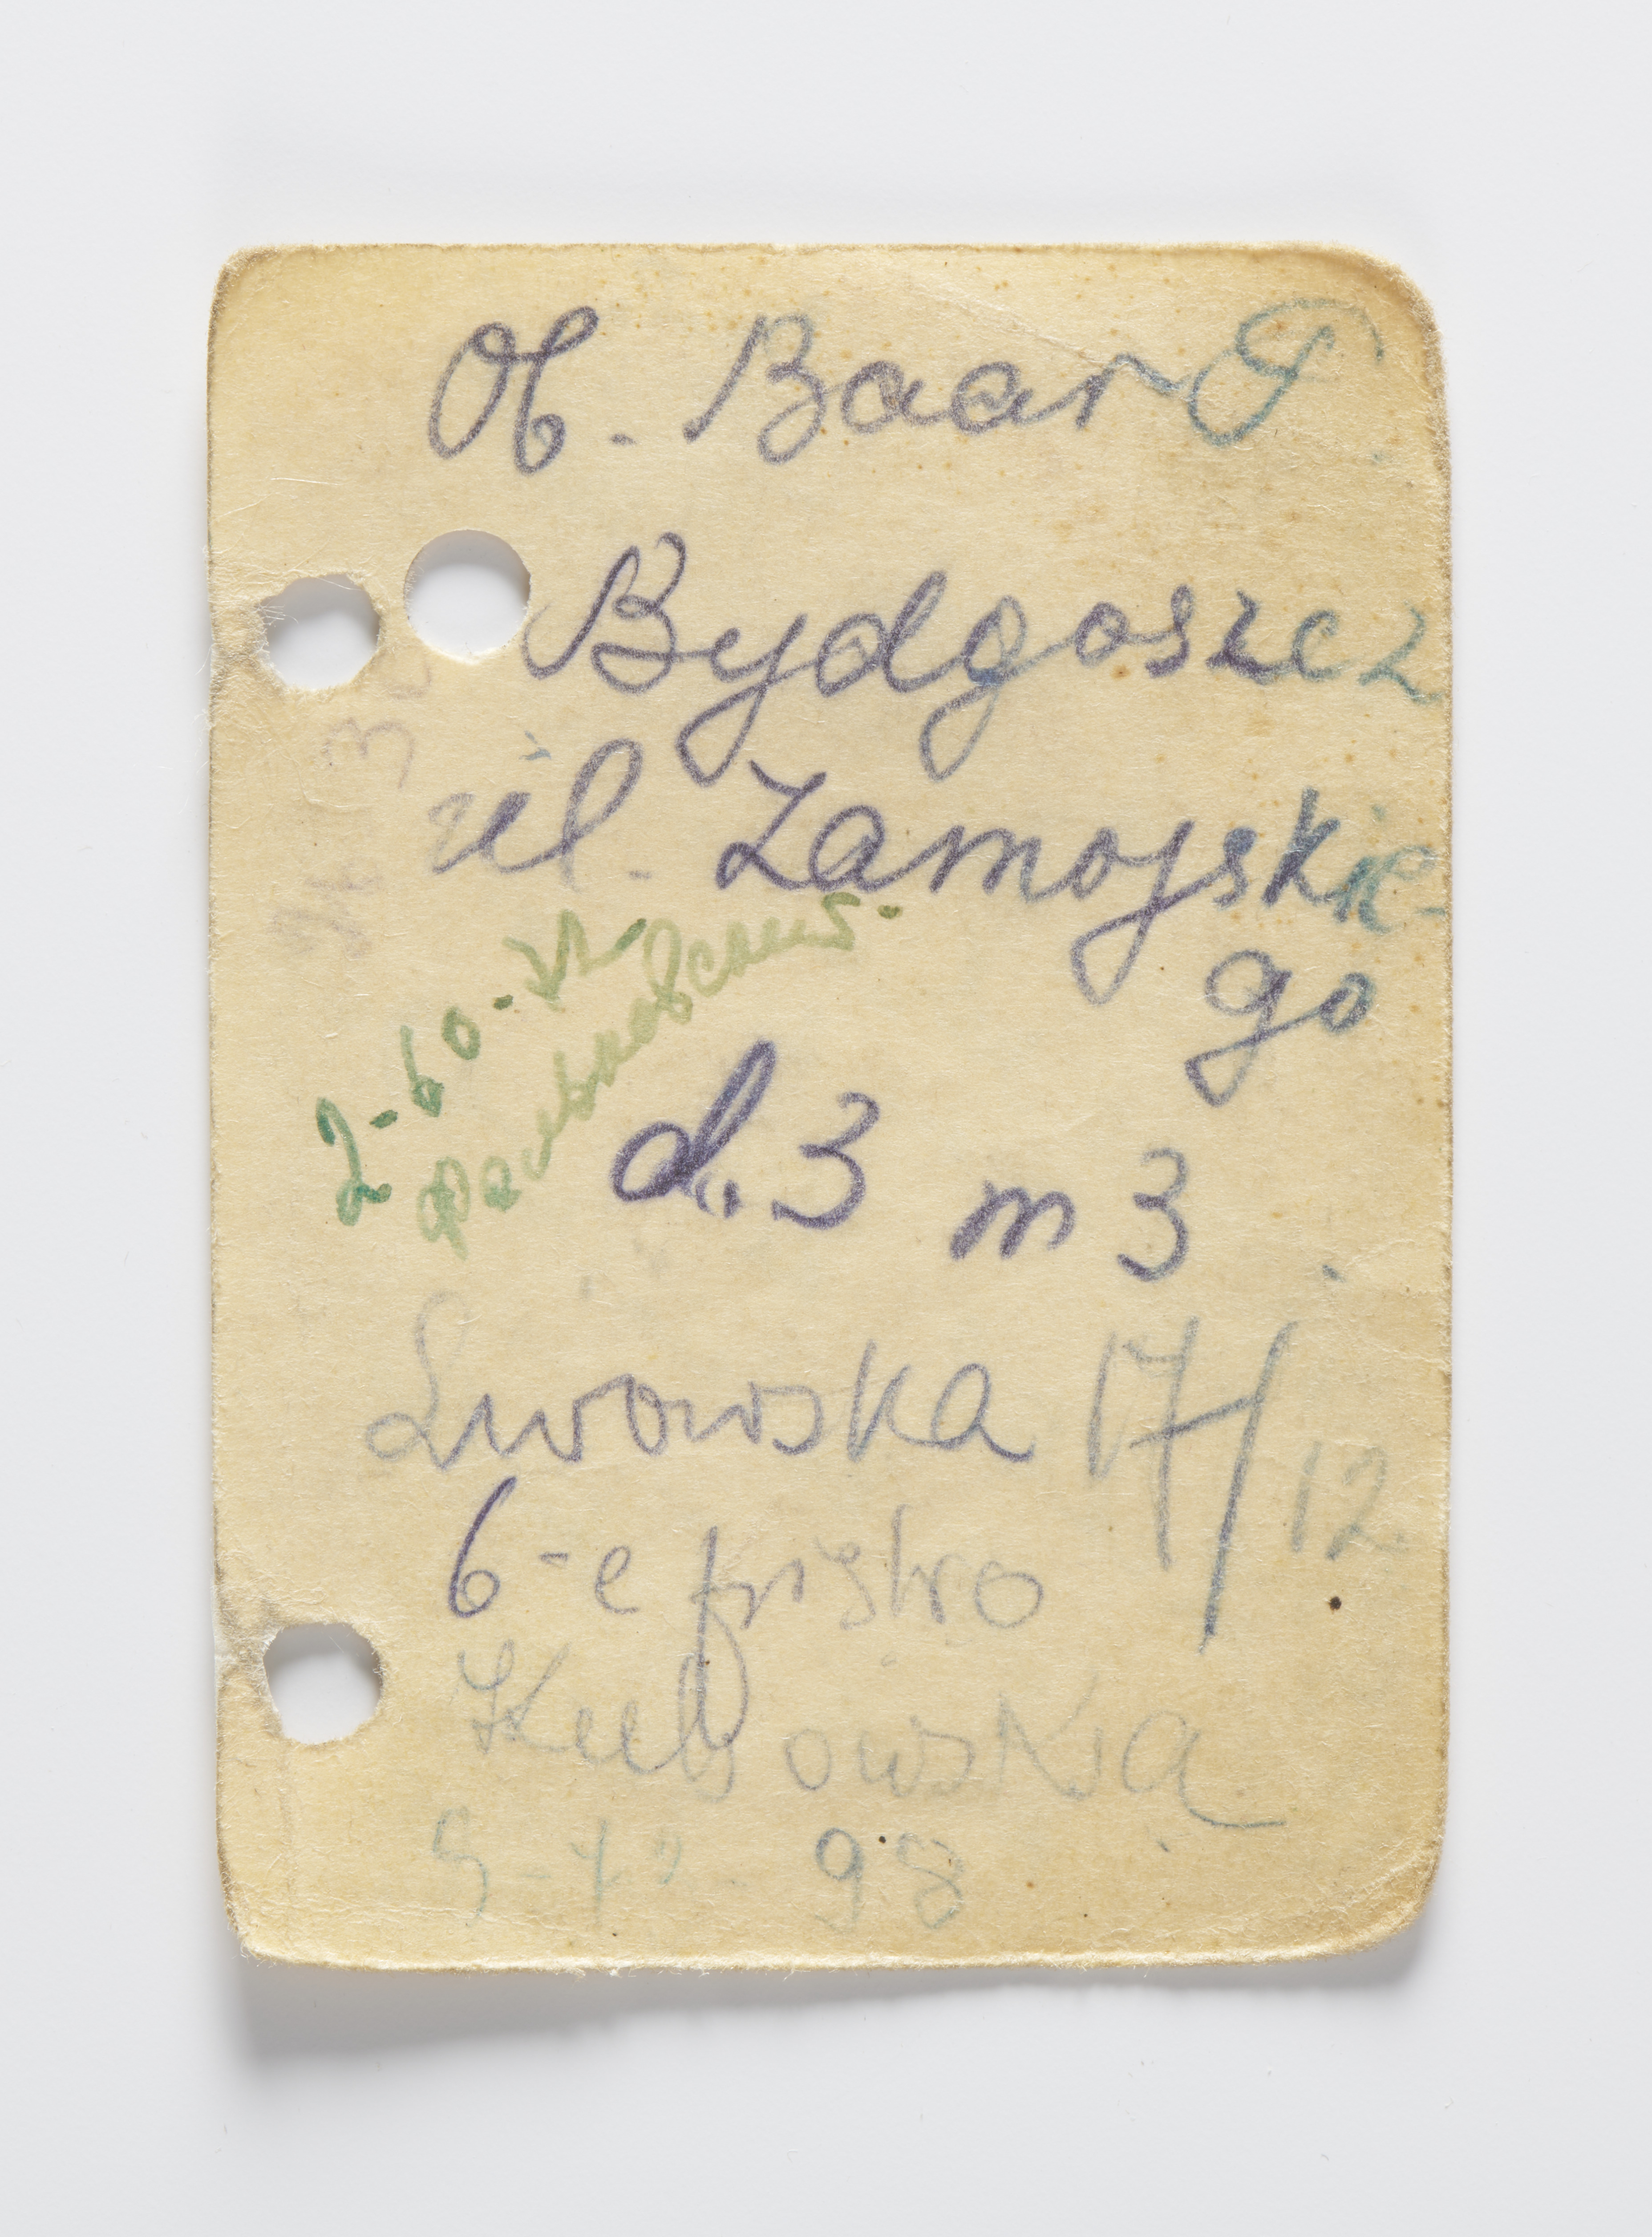 Ob. Baar T.
Bydgoszcz
ul. Zamojskie-
go
2-60-32
d. 3 m 3
Lwowska 17/12
6-e piętro
Kubowska
98